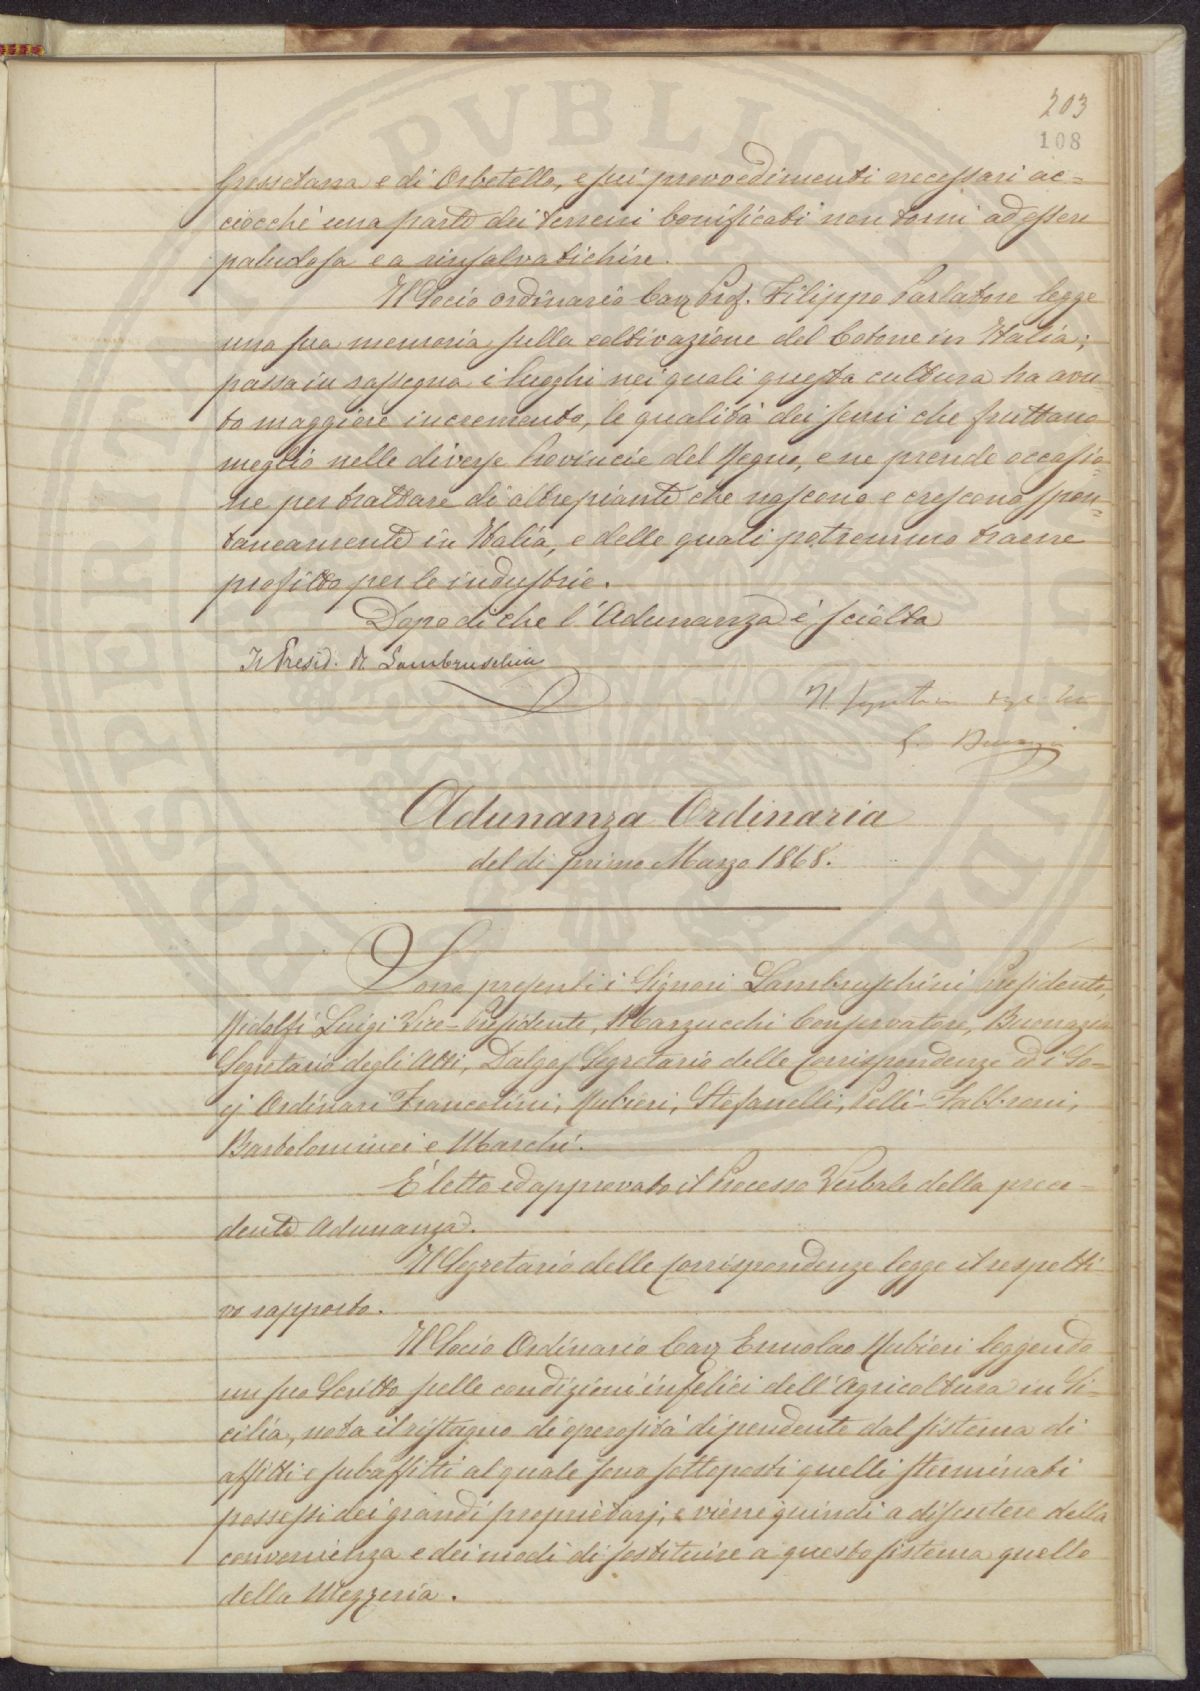 203
108
Grossetana e di Orbetello, e sui provvedimenti necessari ac=
ciocchè una parte dei terreni bonificati non torni ad essere
paludosa e a rinsalvatichire.
Il Socio ordinario Cav. Prof. Filippo Parlatore legge
una sua memoria sulla coltivazione del Cotone in Italia;
passa in rassegna i luoghi nei quali questa cultura ha avu=
to maggiore incremento, le qualità dei semi che fruttano
meglio nelle diverse Provincie del Regno, e ne prende occasio=
ne per trattare di altre piante che nascono e crescono spon=
taneamente in Italia, e delle quali potremmo trarre
profitto per le industrie.
Dopo di che l'Adunanza è sciolta
Il Presid. R. Lambruschini
Il Segretario degli Atti
Adunanza Ordinaria
del dì primo Marzo 1868.
Sono presenti i Signori Lambruschini Presidente,
Ridolfi Luigi Vice-Presidente, Marzucchi Conservatore, Buonazia
Segretario degli Atti, Dalgas Segretario delle Corrispondenze ed i So=
cj Ordinari Francolini, Rubieri, Stefanelli, Pelli-Fabbroni,
Bartolommei e Marchi.
È letto ed approvato il Processo Verbale della prece=
dente Adunanza.
Il Segretario delle Corrispondenze legge il respetti=
vo rapporto.
Il Socio Ordinario Cav. Ermolao Rubieri leggendo
un suo Scritto sulle condizioni infelici dell'Agricoltura in Si=
cilia, nota il ristagno di operosità dipendente dal sistema di
affitti e subaffitti al quale sono sottoposti quelli sterminati
possessi dei grandi proprietarj, e viene quindi a discutere della
convenienza e dei modi di sostituire a questo sistema quello
della Mezzeria.